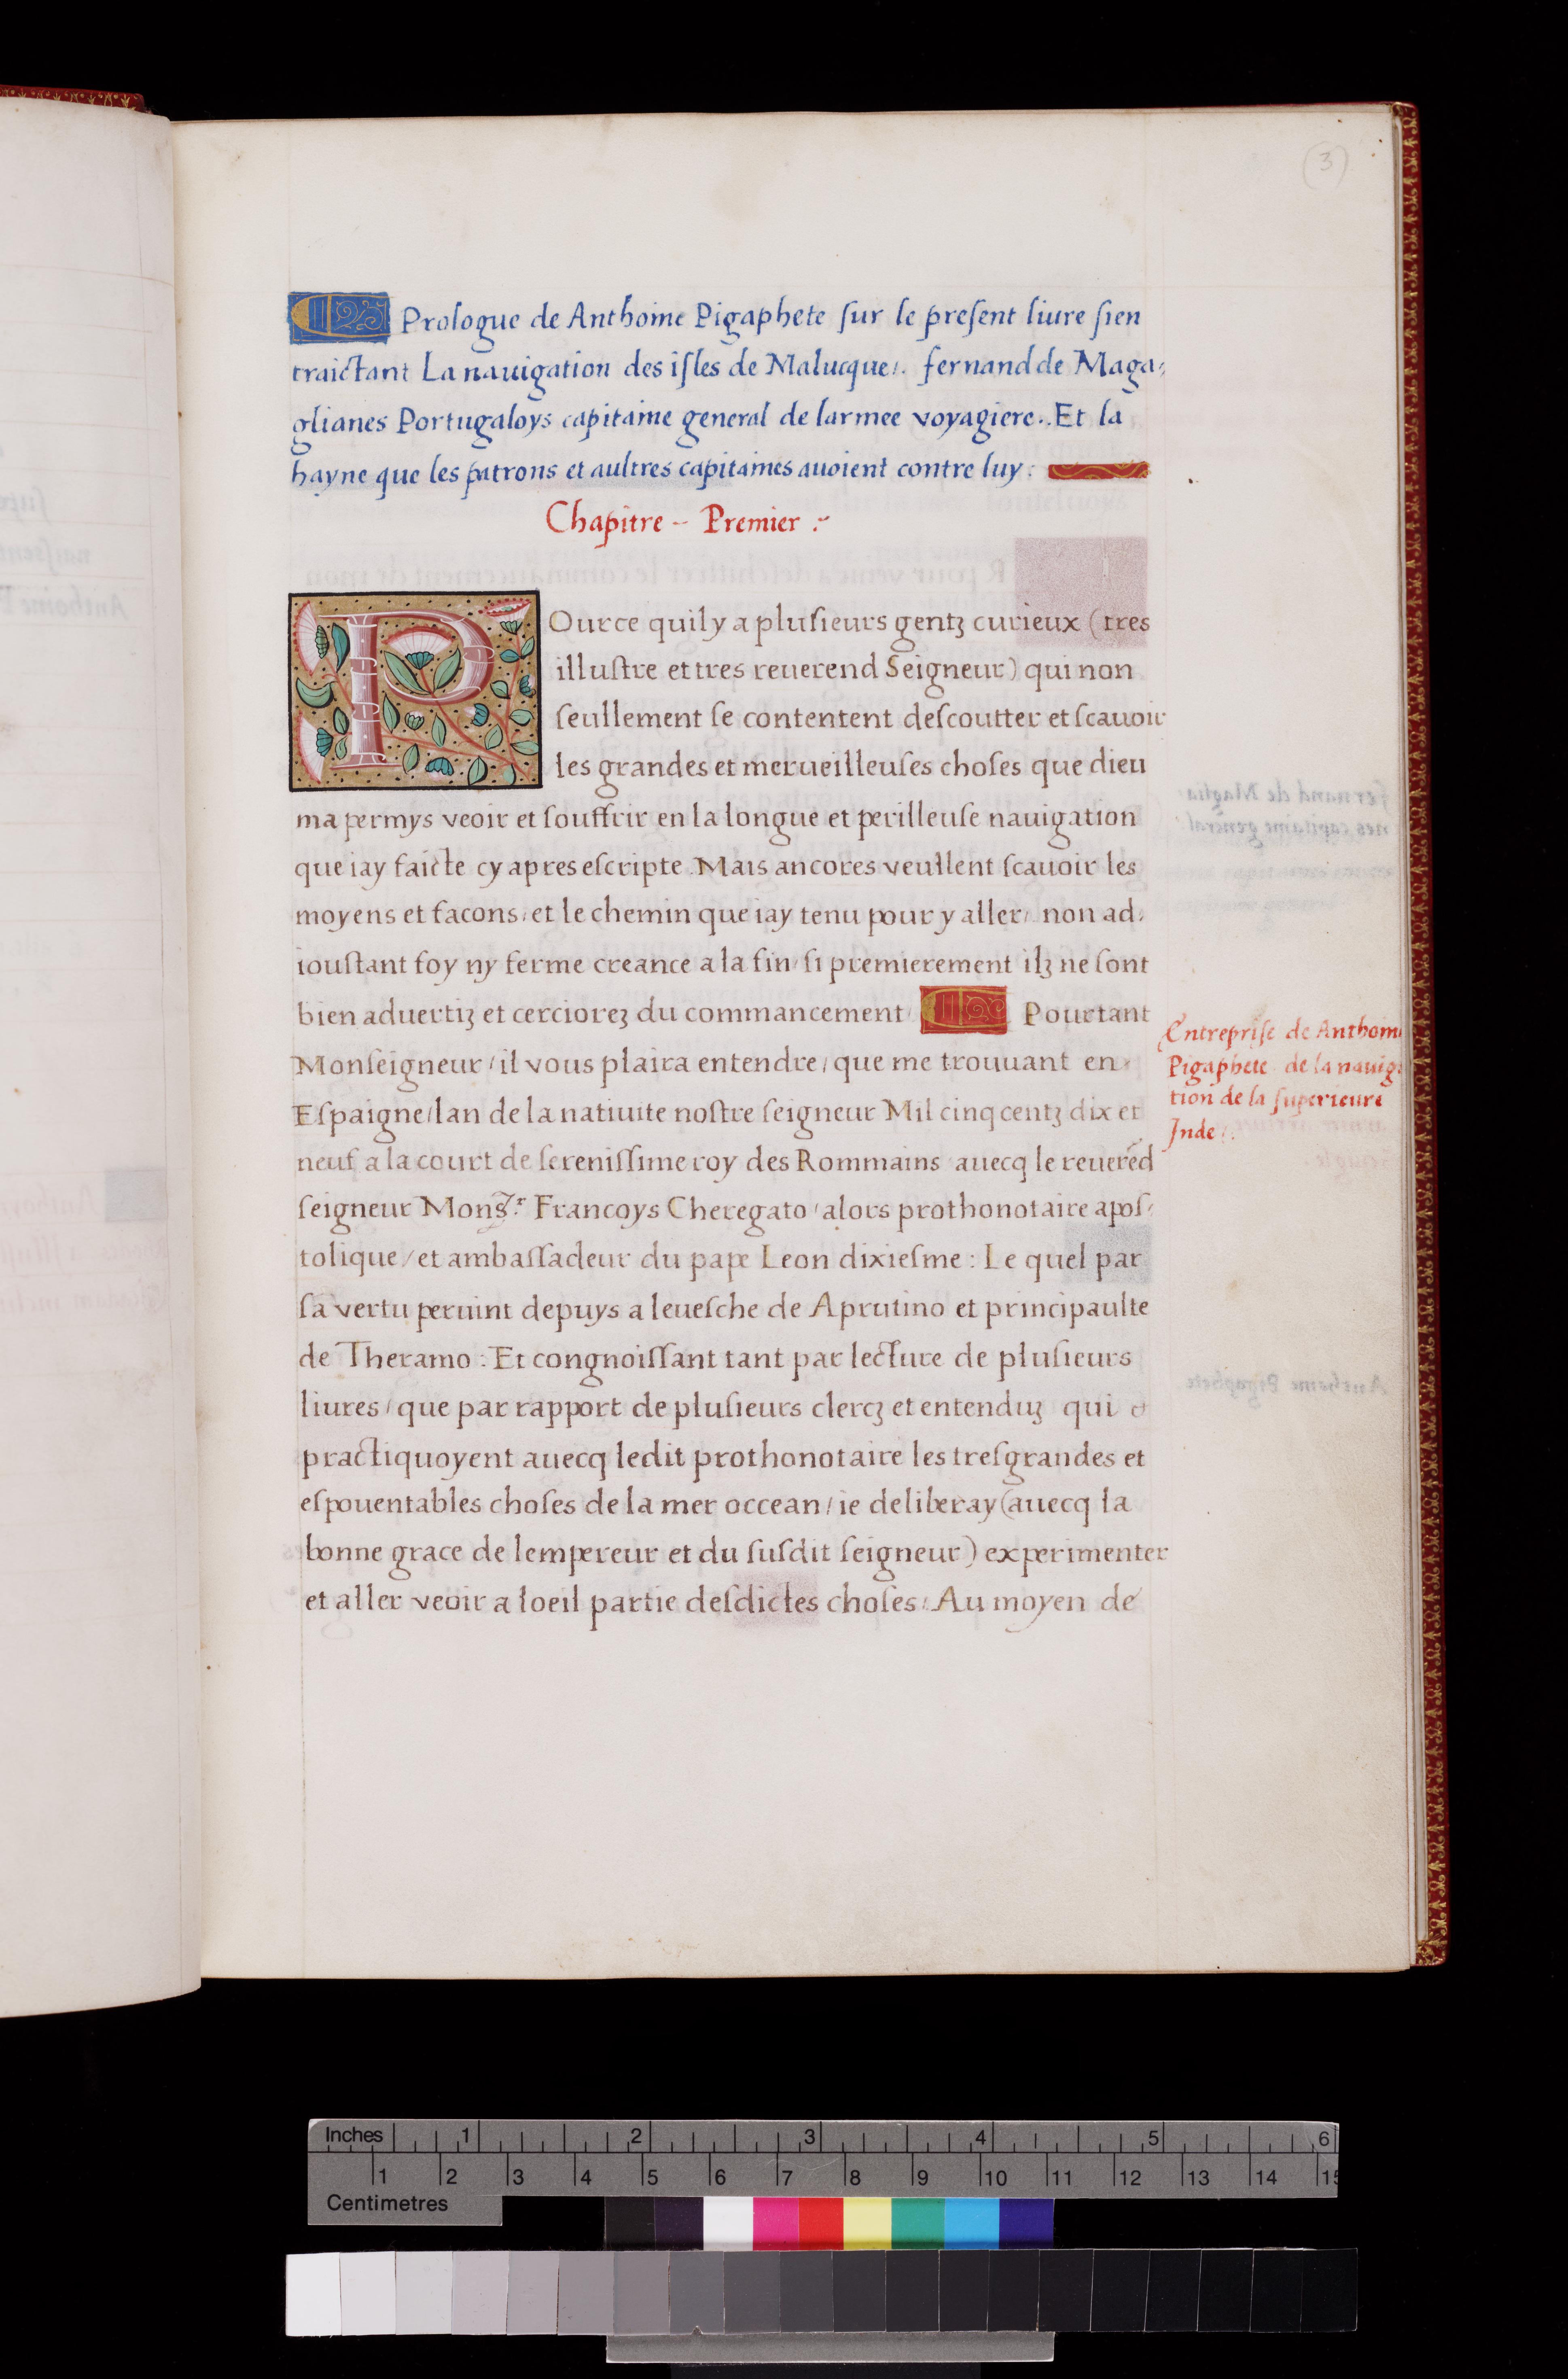 (3)
Prologue de Anthoine Pigaphete ſur le preſent liure ſien
traictant La nauigation des iſles de Malucque/. fernand de Maga,
glianes Portugaloys capitaine general de larmee voyagiere.. Et la
hayne que les patrons et aultres capitaines auoient contre luy :
Chapitre – Premier :~
POurce quil y a pluſieurs gentz curieux (tres
illuſtre et tres reuerend Seigneur) qui non
ſeullement ſe contentent deſcoutter et ſcauoir
les grandes et merueilleuſes choſes que dieu
ma permys veoir et ſouffrir en la longue et perilleuſe nauigation
que iay faicte cy apres eſcripte . Mais ancores veullent ſcauoir les
moyens et facons/ et le chemin que iay tenu pour y aller/ non ad,
iouſtant foy ny ferme creance a la fin/ ſi premierement ilz ne ſont
bien aduertiz et cerciorez du commancement/ Pourtant
Monſeigneur/ il vous plaira entendre/ que me trouuant en
Eſpaigne/ lan de la natiuite noſtre ſeigneur Mil cinq centz dix et
neuf a la court de ſereniſſime roy des Rommains auecq le reueréd
ſeigneur Monſ.r Francoys Cheregato/ alors prothonotaire apoſ,
tolique/ et ambaſſadeur du pape Leon dixieſme : Le quel par
ſa vertu peruint depuys a leueſche de Aprutino et principaulte
de Theramo : Et congnoiſſant tant par lecture de pluſieurs
liures/ que par rapport de pluſieurs clercz et entenduz qui
practiquoyent auecq ledit prothonotaire les treſgrandes et
eſpouentables choſes de la mer occean/ ie deliberay (auecq la
bonne grace de lempereur et du ſuſdit ſeigneur) experimenter
et aller veoir a loeil partie deſdictes choſes/ Au moyen de
Entrepriſe de Anthoin
Pigaphete de la nauiga
tion de la ſuperieure
Inde/.
Inches
1 2 3 4 5 6
1 2 3 4 5 6 7 8 9 10 11 12 13 14 15
Centimetres